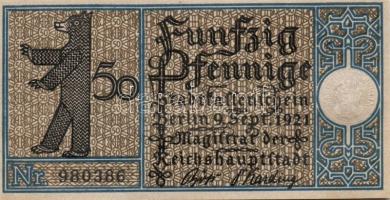 Funfzig
50 Pfennige
Stadtkassenschein
Berlin 9. Sept. 1921
Magistrat der
Reichshauptstadt
Nr. 980386